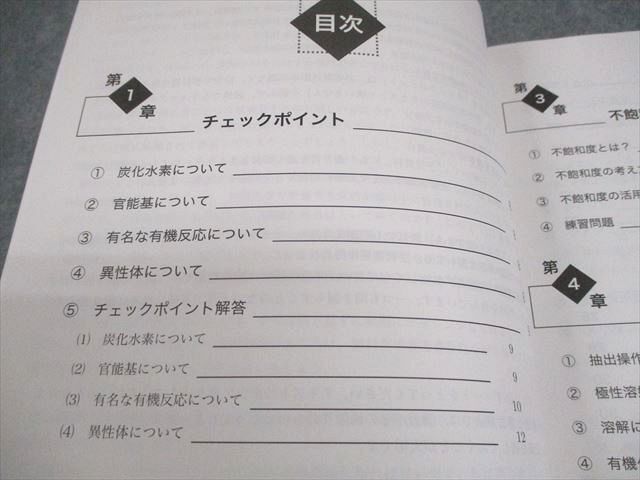 目次
第1章 チェックポイント
① 炭化水素について
② 官能基について
③ 有名な有機反応について
④ 異性体について
⑤ チェックポイント解答
(1) 炭化水素について 9
(2) 官能基について 9
(3) 有名な有機反応について 10
(4) 異性体について 12
第3章 不飽
① 不飽和度とは?
② 不飽和度の考え
③ 不飽和度の活用
④ 練習問題
第4章
① 抽出操作
② 極性溶
③ 溶解に
④ 有機